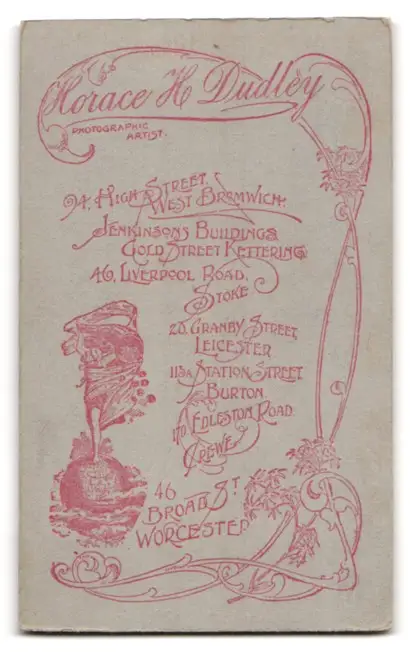 Horace H Dudley
PHOTOGRAPHIC
ARTIST.
94, HIGH STREET,
WEST BROMWICH.
JENKINSONS BUILDINGS
GOLD STREET KETTERING
46, LIVERPOOL ROAD,
STOKE
20, GRANBY STREET,
LEICESTER
113A STATION STREET
BURTON
170 EDLESTON ROAD
CREWE
46
BROAD ST
WORCESTER